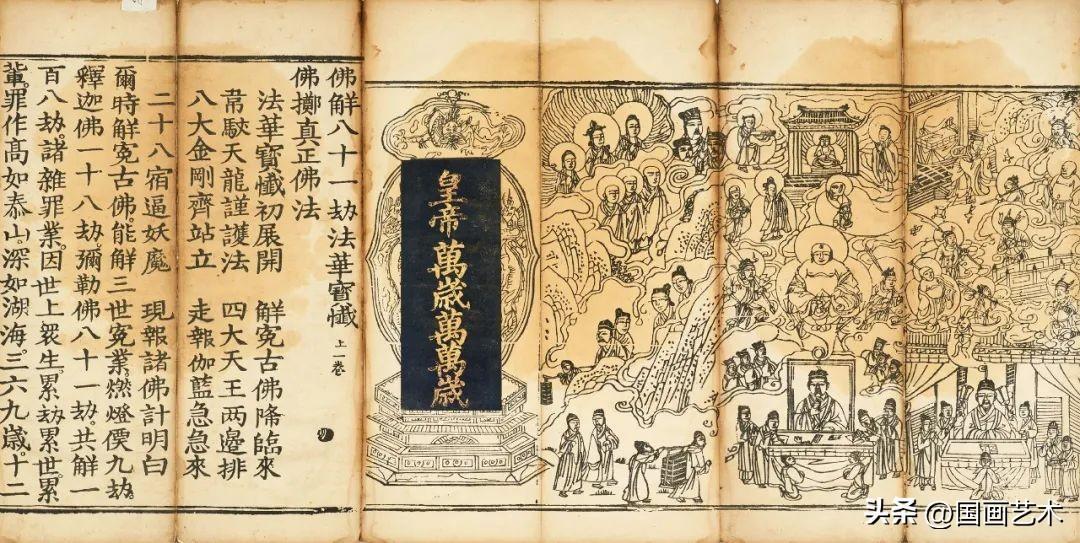 皇帝萬歲萬萬歲
佛解八十一劫法華寶懺 上一卷
佛擲真正佛法
法華寶懺初展開 解冤古佛降臨來
常駇天龍謹護法 四大天王两邉排
八大金剛齊站立 走報伽藍急急來
二十八宿逼妖魔 現報諸佛計明白
爾時解冤古佛。能解三世冤業。燃燈僕九劫。
釋迦佛一十八劫。彌勒佛八十一劫。共解一
百八劫。諸雜罪業。因世上衆生。累劫累世。累
輩。罪作髙如泰山。深如湖海。三六九歳。十二
头条 @国画艺术